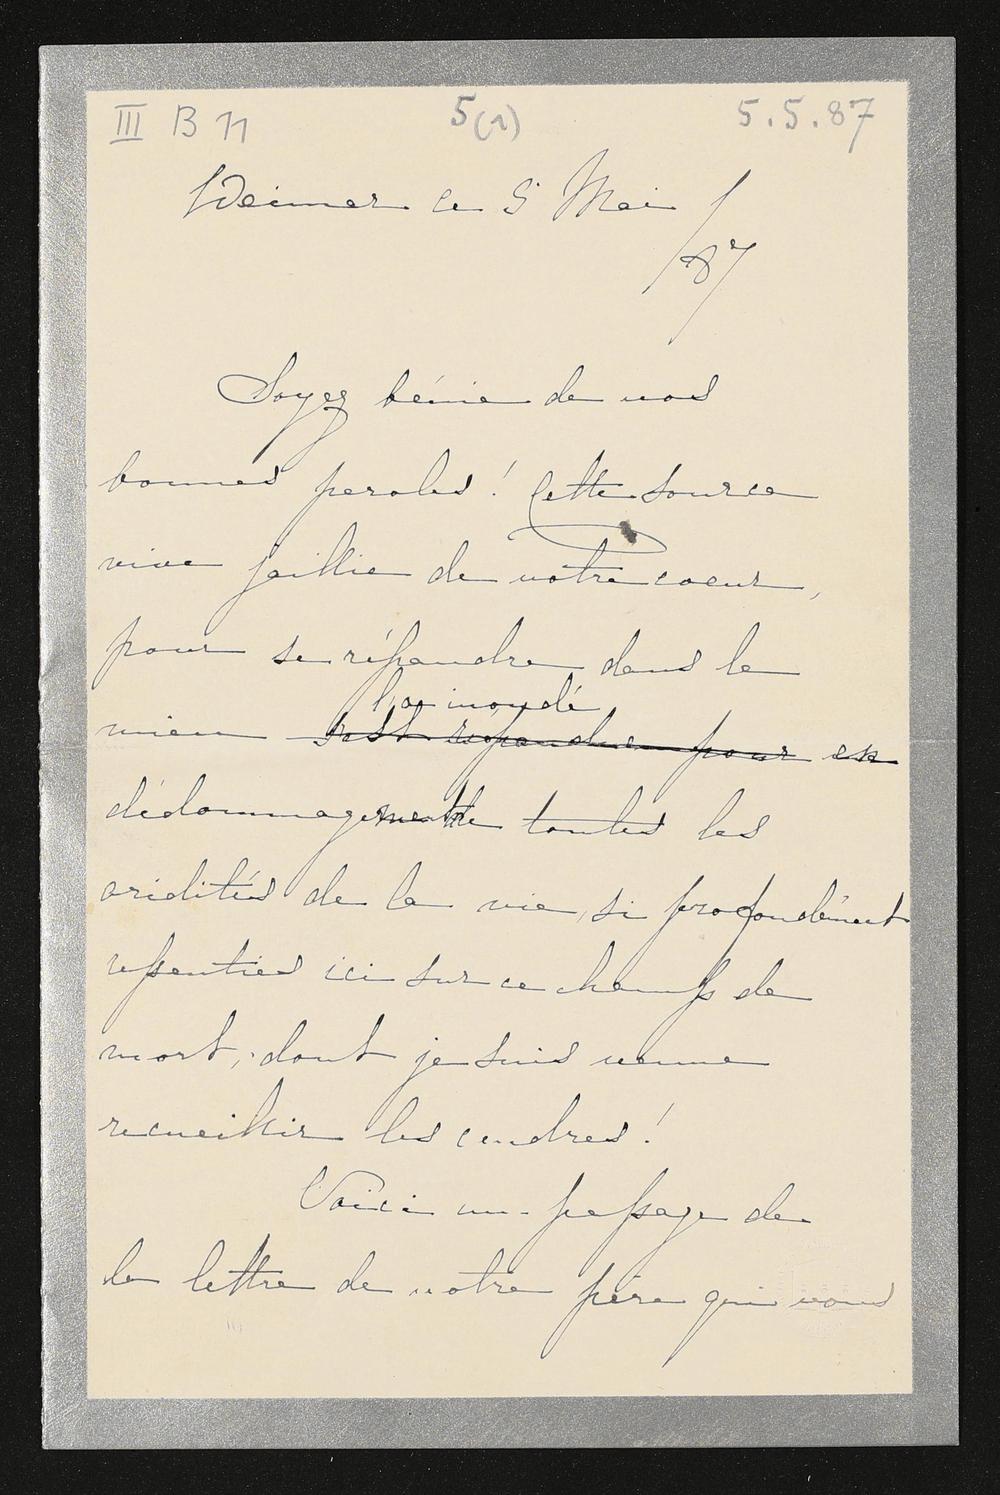 III B 11 5(1) 5.5.87
Weimar ce 5 Mai /
87
Soyez bénie de vos
bonnes paroles! Cette source
vive jaillie de votre coeur,
pour se répandre dans le
l'a inondé
mien s'est répandue pour en
dédommagement de toutes les
aridités de la vie, si profondément
ressenties ici sur ce champs de
mort, dont je suis venue
recueillir les cendres!
Voici un passage de
la lettre de votre père qui vous